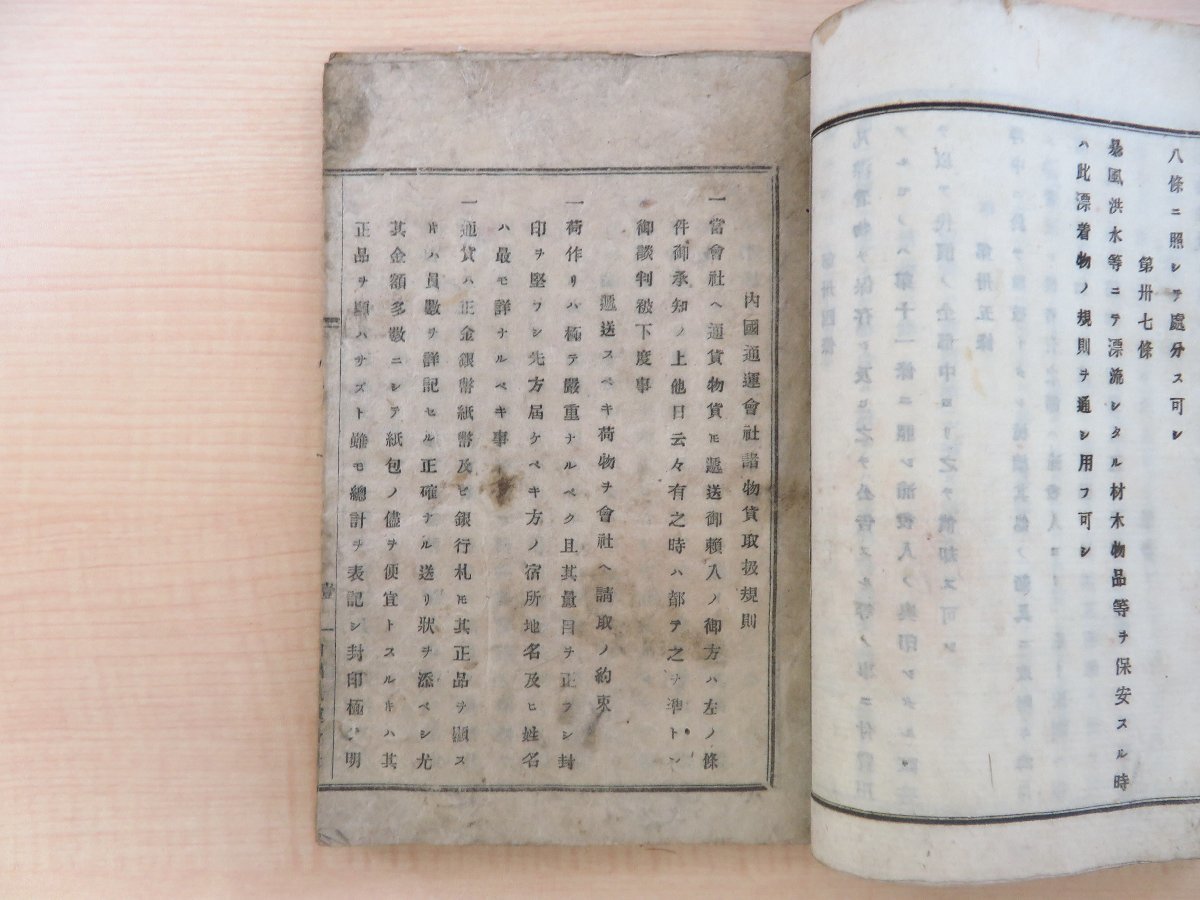 八條ニ照シテ處分ス可シ
第卅七條
暴風洪水等ニテ漂流シタル材木物品等ヲ保安スル時
ハ此漂着物ノ規則ヲ通シ用フ可シ
內國通運會社諸物貨取扱規則
一當會社ヘ通貨物貨モ遞送御賴入ノ御方ハ左ノ條
件御承知ノ上他日云々有之時ハ都テ之ヲ準トシ
御談判被下度事
遞送スベキ荷物ヲ會社ヘ請取ノ約束
一荷作リハ極テ嚴重ナルベク且其量目ヲ正フシ封
印ヲ堅フシ先方屆ケベキ方ノ宿所地名及ヒ姓名
ハ最モ詳ナルベキ事
一通貨ハ正金銀幣紙幣及ヒ銀行札モ其正品ヲ顯ス
ハ員數ヲ詳記セル正確ナル送リ狀ヲ添ベシ尤
其金額多數ニシテ紙包ノ儘ヲ便宜トスルキハ其
正品ヲ顯ハサズト雖モ總計ヲ表記シ封印極メ明